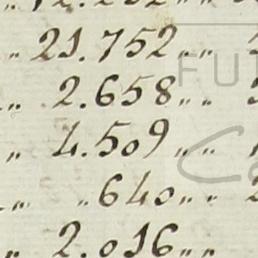 „ 21.752 „ „
„ 2.658 „ „
„ 4.509 „ „
„ „ 640 „ „
„ 2.016 „ „